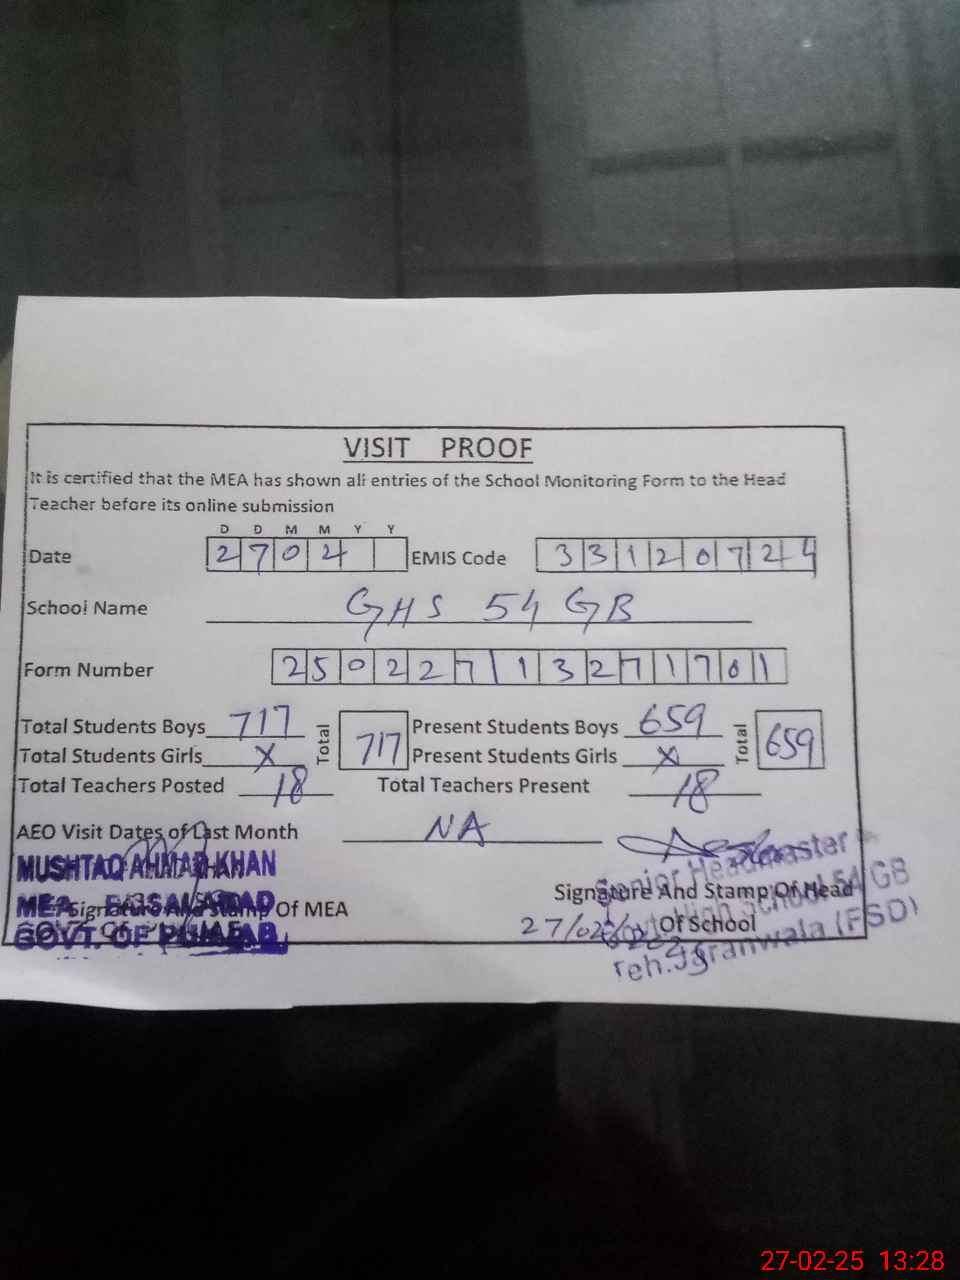 VISIT PROOF
It is certified that the MEA has shown all entries of the School Monitoring Form to the Head
Teacher before its online submission
D D M M Y Y
Date 2 7 0 4 EMIS Code 3 3 1 2 0 7 2 4
School Name GHS 54 GB
Form Number 2 5 0 2 2 7 1 1 3 2 7 1 7 0 1
Total Students Boys 717 Total 717 Present Students Boys 659 Total 659
Total Students Girls X Present Students Girls X
Total Teachers Posted 18 Total Teachers Present 18
AEO Visit Dates of Last Month NA
MUSHTAQ AHMAD KHAN
MEA FAISALABAD
Signature And Stamp Of MEA
GOVT. OF PUNJAB
Senior Headmaster
Signature And Stamp Of Head
Of School
High School 54 GB
Teh. Jaranwala (FSD)
27/02/2025
27-02-25 13:28